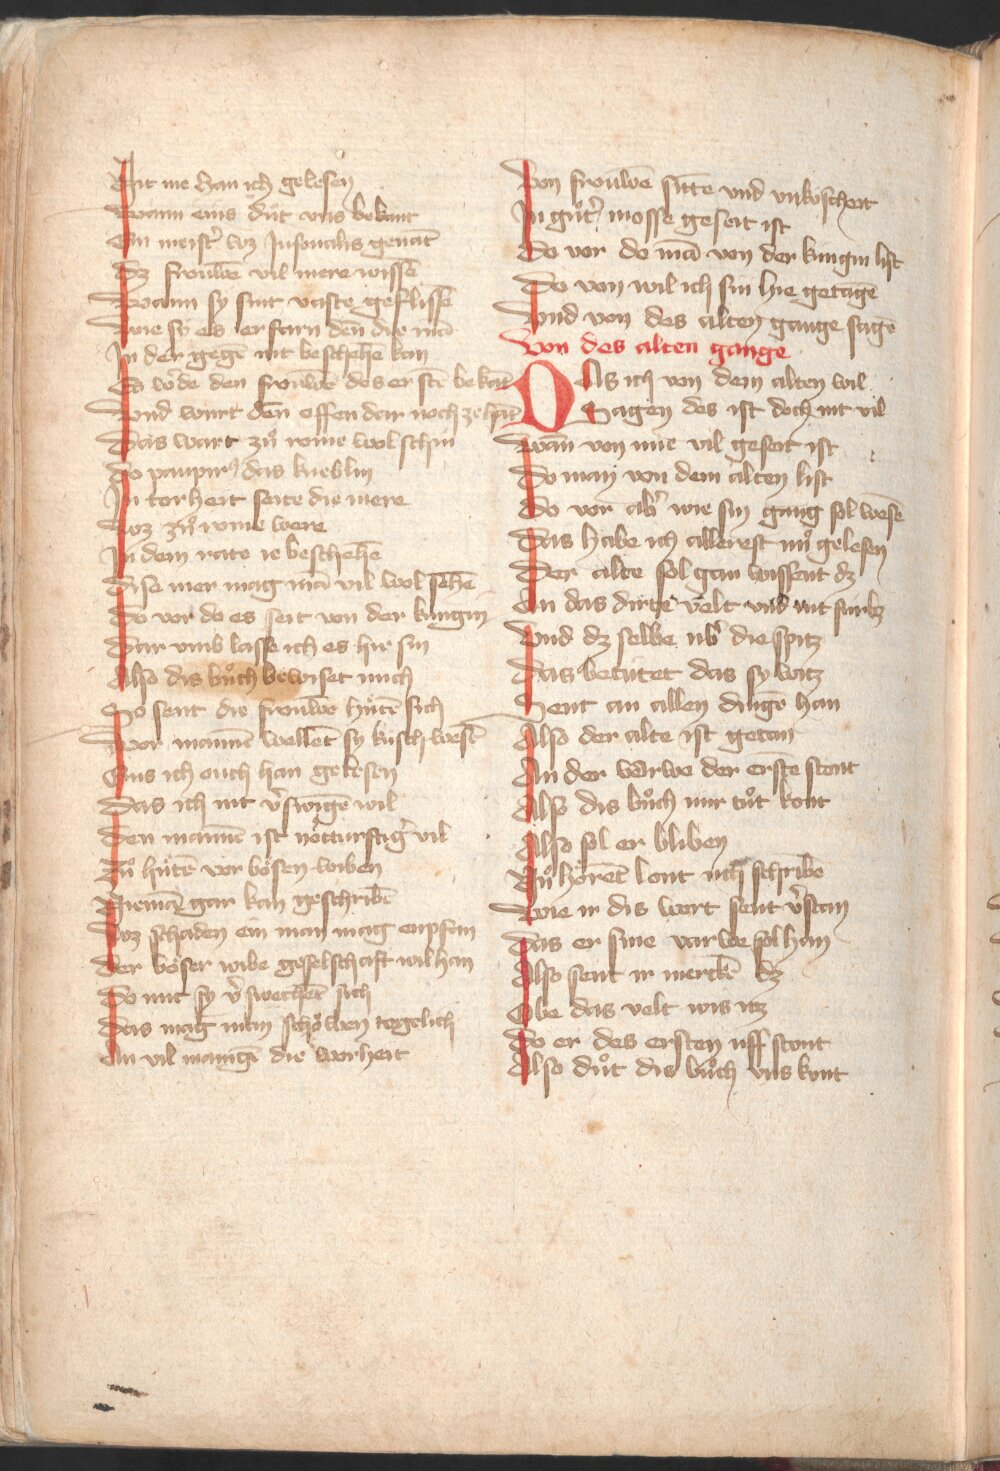 Nit me han ich gelesen
Wann eins důt vns bekant
Ein meist' wz Jnfonalis genāt
Dz frouwē vil mere wissē
Wann sy sint vaste geflissē
Wie sy es erfarn den die mā
Jn der gegē nit beschehē kan
Do wˢde den frouwē des erstē bekāt
Vnd wurt dēn offen dar noch zehāt
Das wart zů rome wol schin
Do paupirˢ das kneblin
Jn torheit seite die mere
Waz zů rome were
Jn dem rate ie beschehē
Dise mer mag mā vil wol sehē
Do vor do es seit von der kungin
Dar vmb lasse ich es hir sin
Also dis bůch bewiset mich
So sent die frouwē hůtē sich
Vor mannē wellēt sy kusch wesē
Eins ich ouch han gelesen
Das ich nit vˢswigē wil
Den mannē ist nötturftigˢ vil
Zů hůtē vor bösen wiben
Niemā gar kan geschribē
Waz schaden ein man mag enpfan
Der böser wibe geselschaft wil han
Do mit sy vˢswechēt sich
Das mag man schöwen tegelich
An vil manigē die worheit
Von frouwē sitte vnd vnkuscheit
Jn gůtˢ mosse geseit ist
Do vor do mā von der kungin list
Do von wil ich sin hie getage
Vnd von des alten gange sagē
Von des alten gange
DAs ich von dem alten wil
Sagen des ist doch nit vil
Wān von mir vil geseit ist
Do man von dem alten list
Do vor abˢ wie sin gang sol wesē
Das habe ich allerest nů gelesen
Der alte sol gan wissent dz
An das dirte velt vnd nit fúrbz
Vnd dz selbe úbˢ die spitz
Das betútet das sy witz
Sent an allen dingē han
Also der alte ist getan
An der varwe der erstē stent
Also dis bůch mir tůt kont
Also sol er bliben
Nů hörēt lont úch schribē
Wie ir dis wort sent vˢstan
Das er sine varwe sol han
Also sent ir merckē dz
Obe das velt wis itz
Do er des ersten uff stont
Also důt dis bůch vns kont